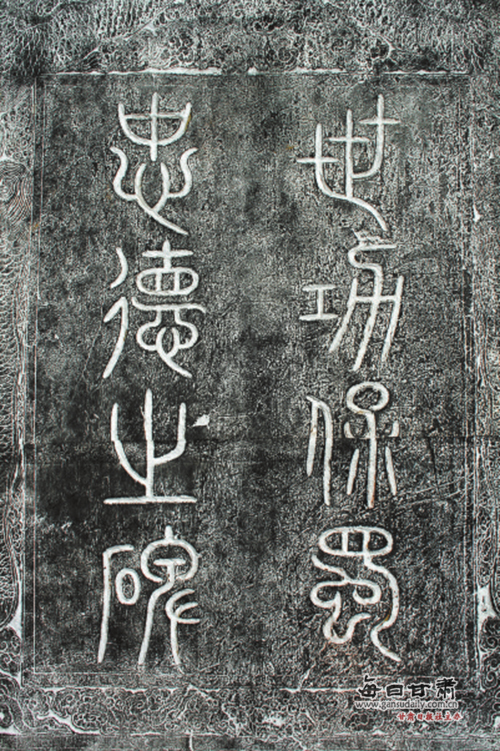 世功保蜀
忠德之碑
每日甘肃
www.gansudaily.com.cn
甘肃日报社主办